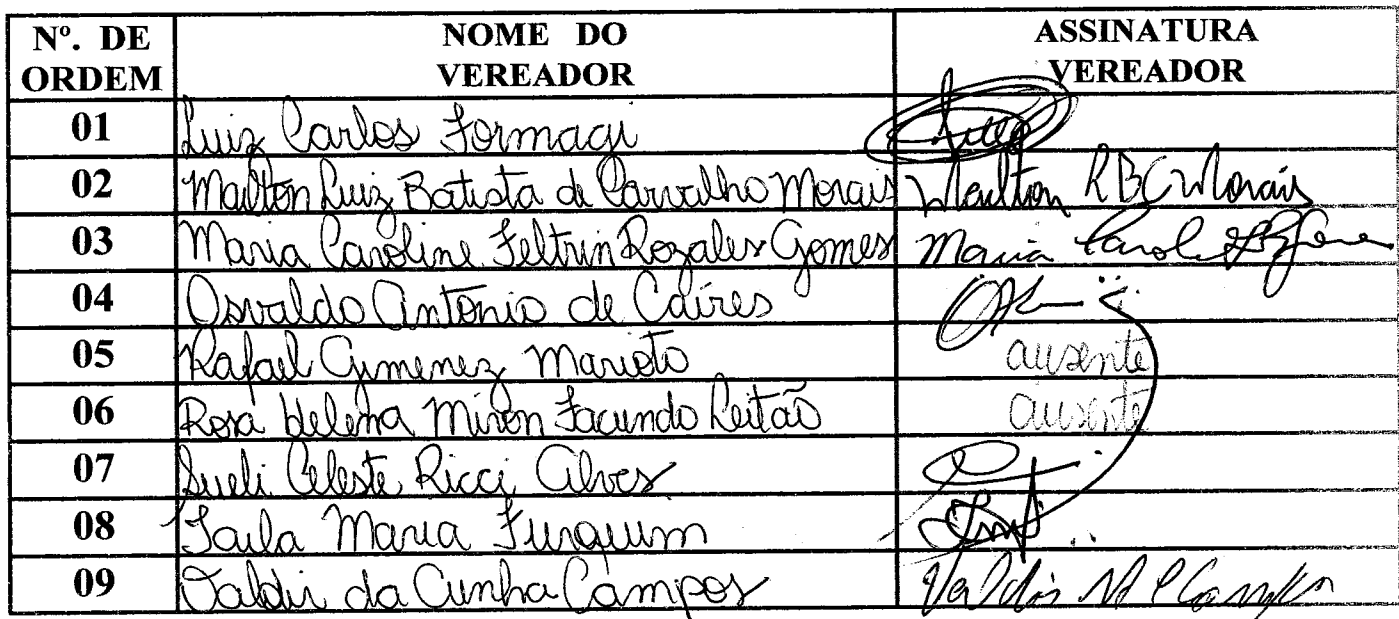 Nº. DE ORDEM NOME DO VEREADOR ASSINATURA VEREADOR
01 Luiz Carlos Formagi
02 Mailton Luiz Batista de Carvalho Morais Mailton RBC Morais
03 Maria Caroline Feltrin Rozales Gomes Maria Carol
04 Osvaldo Antonio de Caires
05 Rafael Gimenez Marioto ausente
06 Rosa Helena Miron Facundo Leitão ausente
07 Sueli Celeste Ricci Alves
08 Taila Maria Furquim
09 Valdir da Cunha Campos